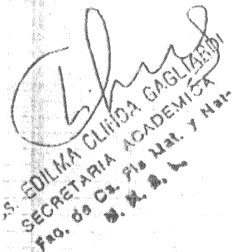 S. EDILMA CLINDA GAGLIARDI
SECRETARIA ACADEMICA
Fac. de Cs. Fis Mat. y Nat.
U. N. S. L.